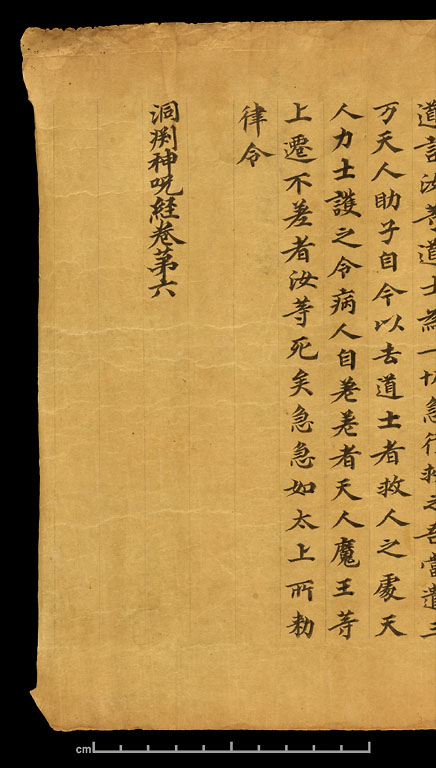 道言汝等道士為一切急行救之吾當遣三
万天人助子自今以去道士者救人之處天
人力士護之令病人自差差者天人魔王等
上遷不差者汝等死矣急急如太上所勑
律令
洞渊神呪經卷第六
cm